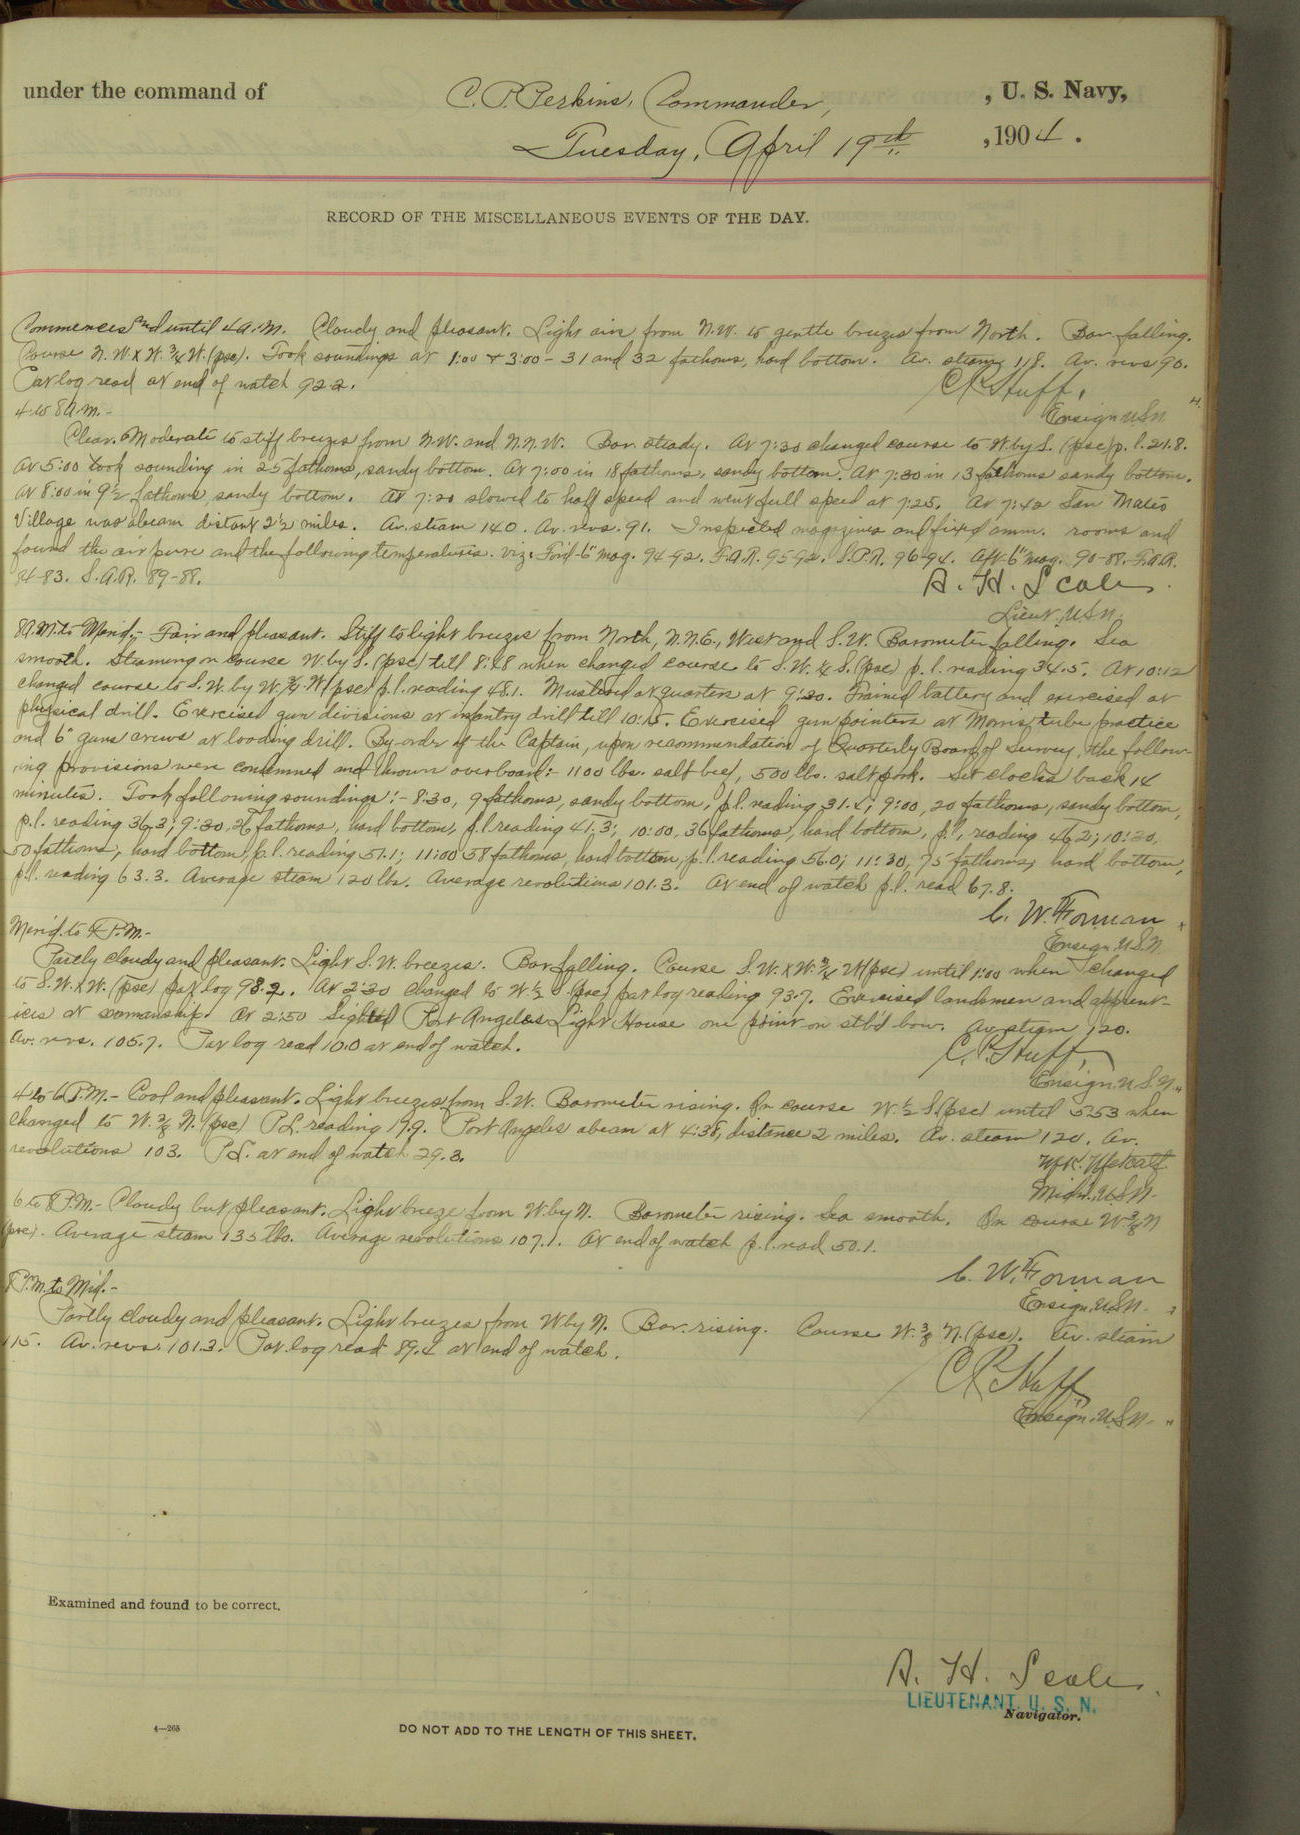 under the command of C. P. Perkins, Commander, , U. S. Navy,
Tuesday, April 19th , 1904.
RECORD OF THE MISCELLANEOUS EVENTS OF THE DAY.
Commences and until 4 A.M. Cloudy and pleasant. Light airs from N.W. to gentle breezes from North. Bar. falling.
Course N.W. x W. 3/4 W. (psc). Took soundings at 1:00 & 3:00 - 31 and 32 fathoms, hard bottom. Av. steam 118. Av. revs 90.
Pat log read at end of watch 92.2.
C. P. Huff,
Ensign U.S.N.
4 to 8 A.M.-
Clear. Moderate to stiff breezes from N.W. and N.N.W. Bar. steady. At 7:30 changed course to W. by S. (psc) p.l. 21.8.
At 5:00 took sounding in 25 fathoms, sandy bottom. At 7:00 in 18 fathoms, sandy bottom. At 7:30 in 13 fathoms sandy bottom.
At 8:00 in 9 1/2 fathoms, sandy bottom. At 7:20 slowed to half speed and went full speed at 7:25. At 7:42 San Mateo
Village was abeam distant 2 1/2 miles. Av. steam 140. Av. revs. 91. Inspected magazines and fixed amm. rooms and
found the air pure and the following temperatures. viz: For'd 6" mag. 94-92. F.A.R. 95-92. S.P.R. 96-94. Aft 6" mag. 90-88. F.A.R.
84-83. S.A.R. 89-88.
A. H. Scales
Lieut. U.S.N.
8 A.M. to Merid.- Fair and pleasant. Stiff to light breezes from North, N.N.E., West and S.W. Barometer falling. Sea
smooth. Steaming on course W. by S. (psc) till 8:48 when changed course to S.W. 1/4 S. (psc) p.l. reading 34.5. At 10:12
changed course to S.W. by W. 3/4 W. (psc) p.l. reading 48.1. Mustered at quarters at 9:30. Trained battery and exercised at
physical drill. Exercised gun divisions at infantry drill till 10:15. Exercised gun pointers at Morris tube practice
and 6" guns crews at loading drill. By order of the Captain, upon recommendation of Quarterly Board of Survey, the follow-
ing provisions were condemned and thrown overboard:- 1100 lbs. salt beef, 500 lbs. salt pork. Set clocks back 14
minutes. Took following soundings:- 8:30, 9 fathoms, sandy bottom, p.l. reading 31.4; 9:00, 20 fathoms, sandy bottom,
p.l. reading 36.3; 9:30, 26 fathoms, hard bottom, p.l. reading 41.3; 10:00, 36 fathoms, hard bottom, p.l. reading 46.2; 10:30,
50 fathoms, hard bottom, p.l. reading 51.1; 11:00 58 fathoms, hard bottom, p.l. reading 56.0; 11:30, 75 fathoms, hard bottom,
p.l. reading 63.3. Average steam 120 lbs. Average revolutions 101.3. At end of watch p.l. read 67.8.
C. W. Forman
Ensign U.S.N.
Merid. to 4 P.M.-
Partly cloudy and pleasant. Light S.W. breezes. Bar falling. Course S.W. x W. 3/4 W (psc) until 1:00 when changed
to S.W. x W. (psc) pat log 98.2. At 2:30 changed to W. 1/2 S. (psc) pat log reading 93.7. Exercised landsmen and apprent-
ices at seamanship. At 2:50 Sighted Port Angeles Light House one point on stb'd bow. Av. steam 120.
Av. revs. 105.7. Pat log read 10.0 at end of watch.
C. P. Huff,
Ensign U.S.N.
4 to 6 P.M.- Cool and pleasant. Light breezes from S.W. Barometer rising. On course W. 1/2 S. (psc) until 5:53 when
changed to W. 3/8 N. (psc) P.L. reading 19.9. Port Angeles abeam at 4:38, distance 2 miles. Av. steam 120. Av.
revolutions 103. P.L. at end of watch 29.3.
Metcalf
Mid'n. U.S.N.
6 to 8 P.M.- Cloudy but pleasant. Light breeze from W. by N. Barometer rising. Sea smooth. On course W. 3/8 N
(psc). Average steam 135 lbs. Average revolutions 107.1. At end of watch p.l. read 50.1.
C. W. Forman
Ensign U.S.N.
8 P.M. to Mid.-
Partly cloudy and pleasant. Light breezes from W by N. Bar. rising. Course W. 3/8 N. (psc). Av. steam
115. Av. revs. 101.3. Pat. log read 89.4 at end of watch.
C. P. Huff
Ensign U.S.N.
Examined and found to be correct.
A. H. Scales
LIEUTENANT, U. S. N.
Navigator.
4—265
DO NOT ADD TO THE LENGTH OF THIS SHEET.